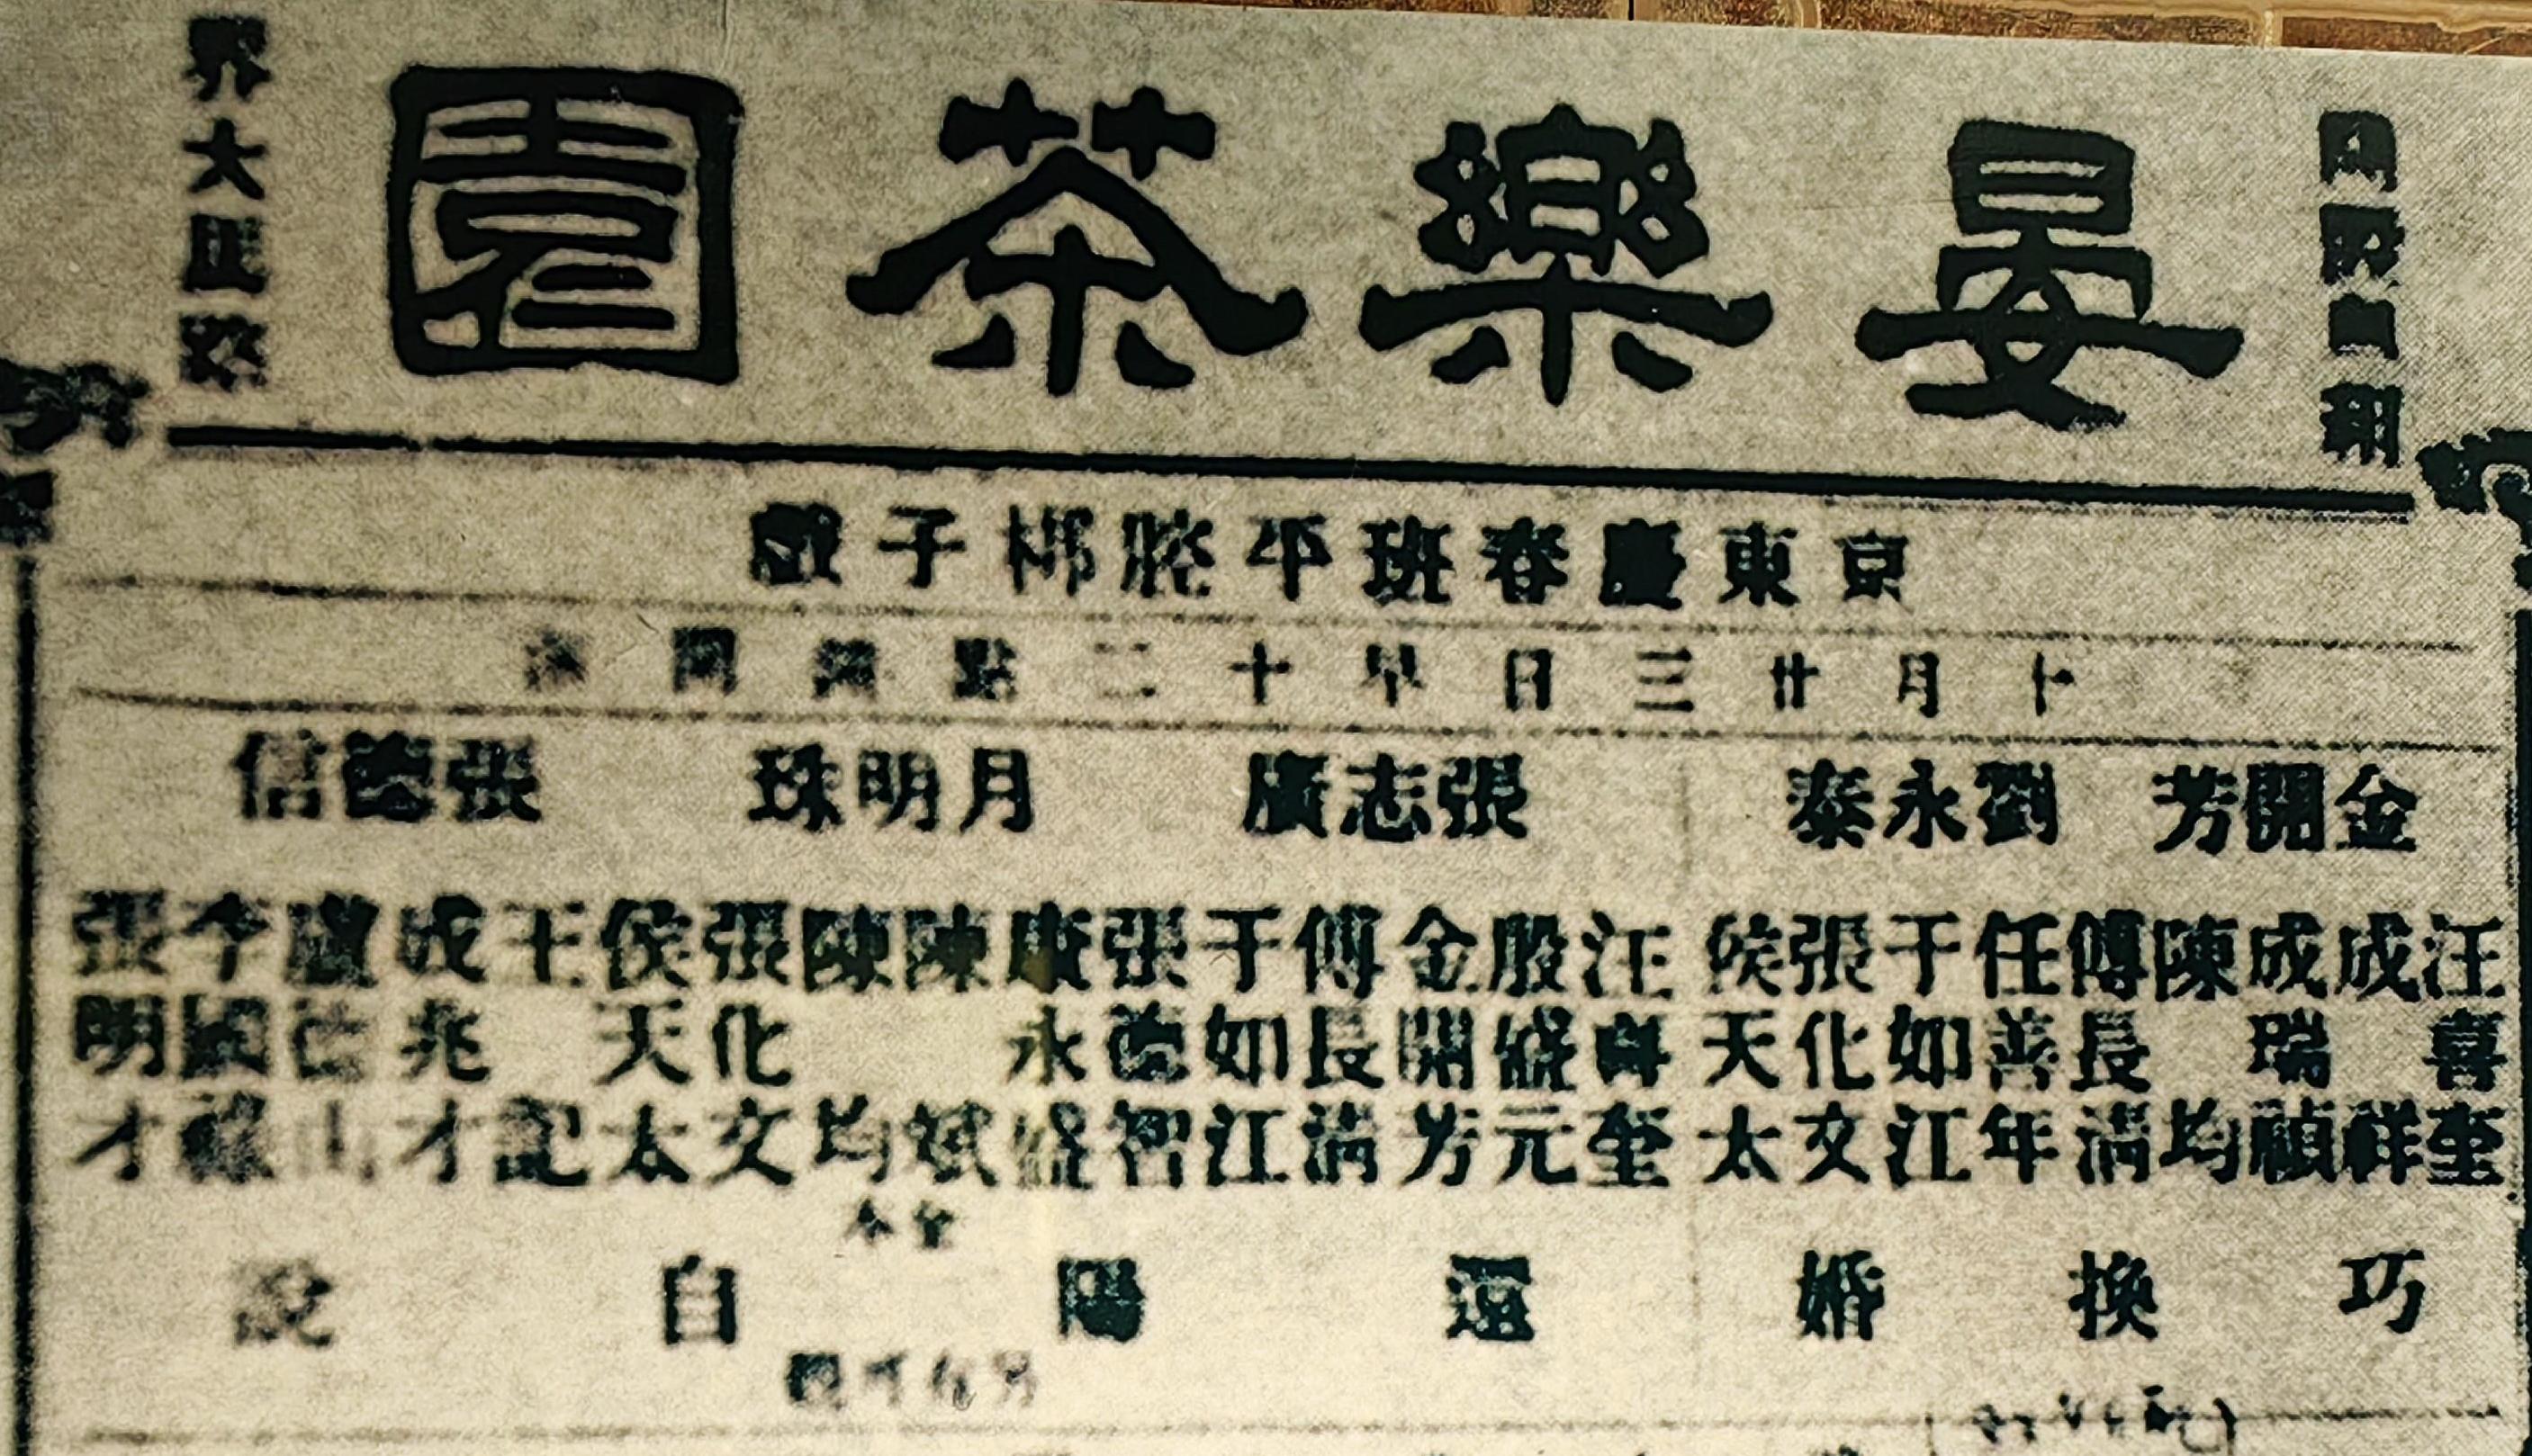 晏樂茶園
界大馬路
京東慶春班平腔梆子戲
十月廿三日早十二點鐘開演
金開芳 劉永泰 張志廣 月明珠 張德信
汪喜奎
成祥
成瑞禎
陳均
傅長清
任善年
于如江
張化文
侯天太
汪喜奎
殷盛元
金開芳
傅長清
于如江
張德智
康永盛
陳斌
陳均
張化文
侯天太
王記
成兆才
張明才
巧換婚
全本
還陽自說